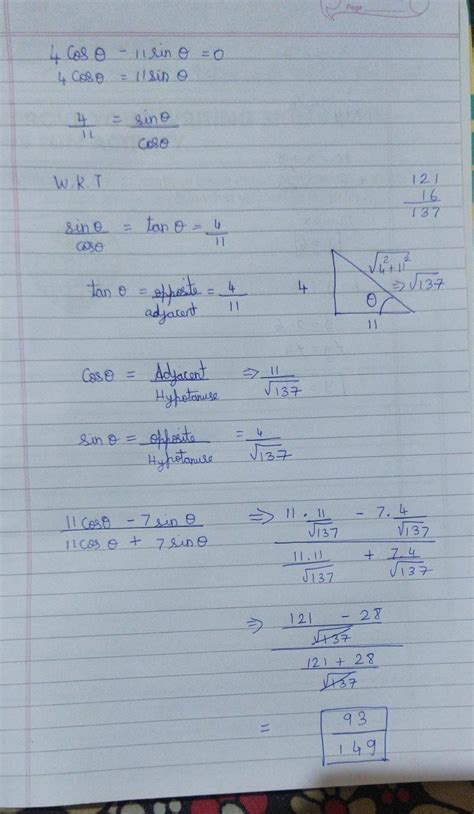 Page
4 Cos θ - 11 sin θ = 0
4 Cos θ = 11 sin θ
4/11 = sin θ/cos θ
W.K.T
121
16
137
sin θ/cos θ = tan θ = 4/11
tan θ = opposite/adjacent = 4/11
4
√4² + 11²
⇒ √137
θ
11
Cos θ = Adjacent/Hypotanuse ⇒ 11/√137
sin θ = opposite/Hypotanuse = 4/√137
11 Cos θ - 7 sin θ / 11 cos θ + 7 sin θ ⇒ 11 . 11/√137 - 7. 4/√137 / 11.11/√137 + 7.4/√137
⇒ 121 - 28/√137 / 121 + 28/√137
= 93/149